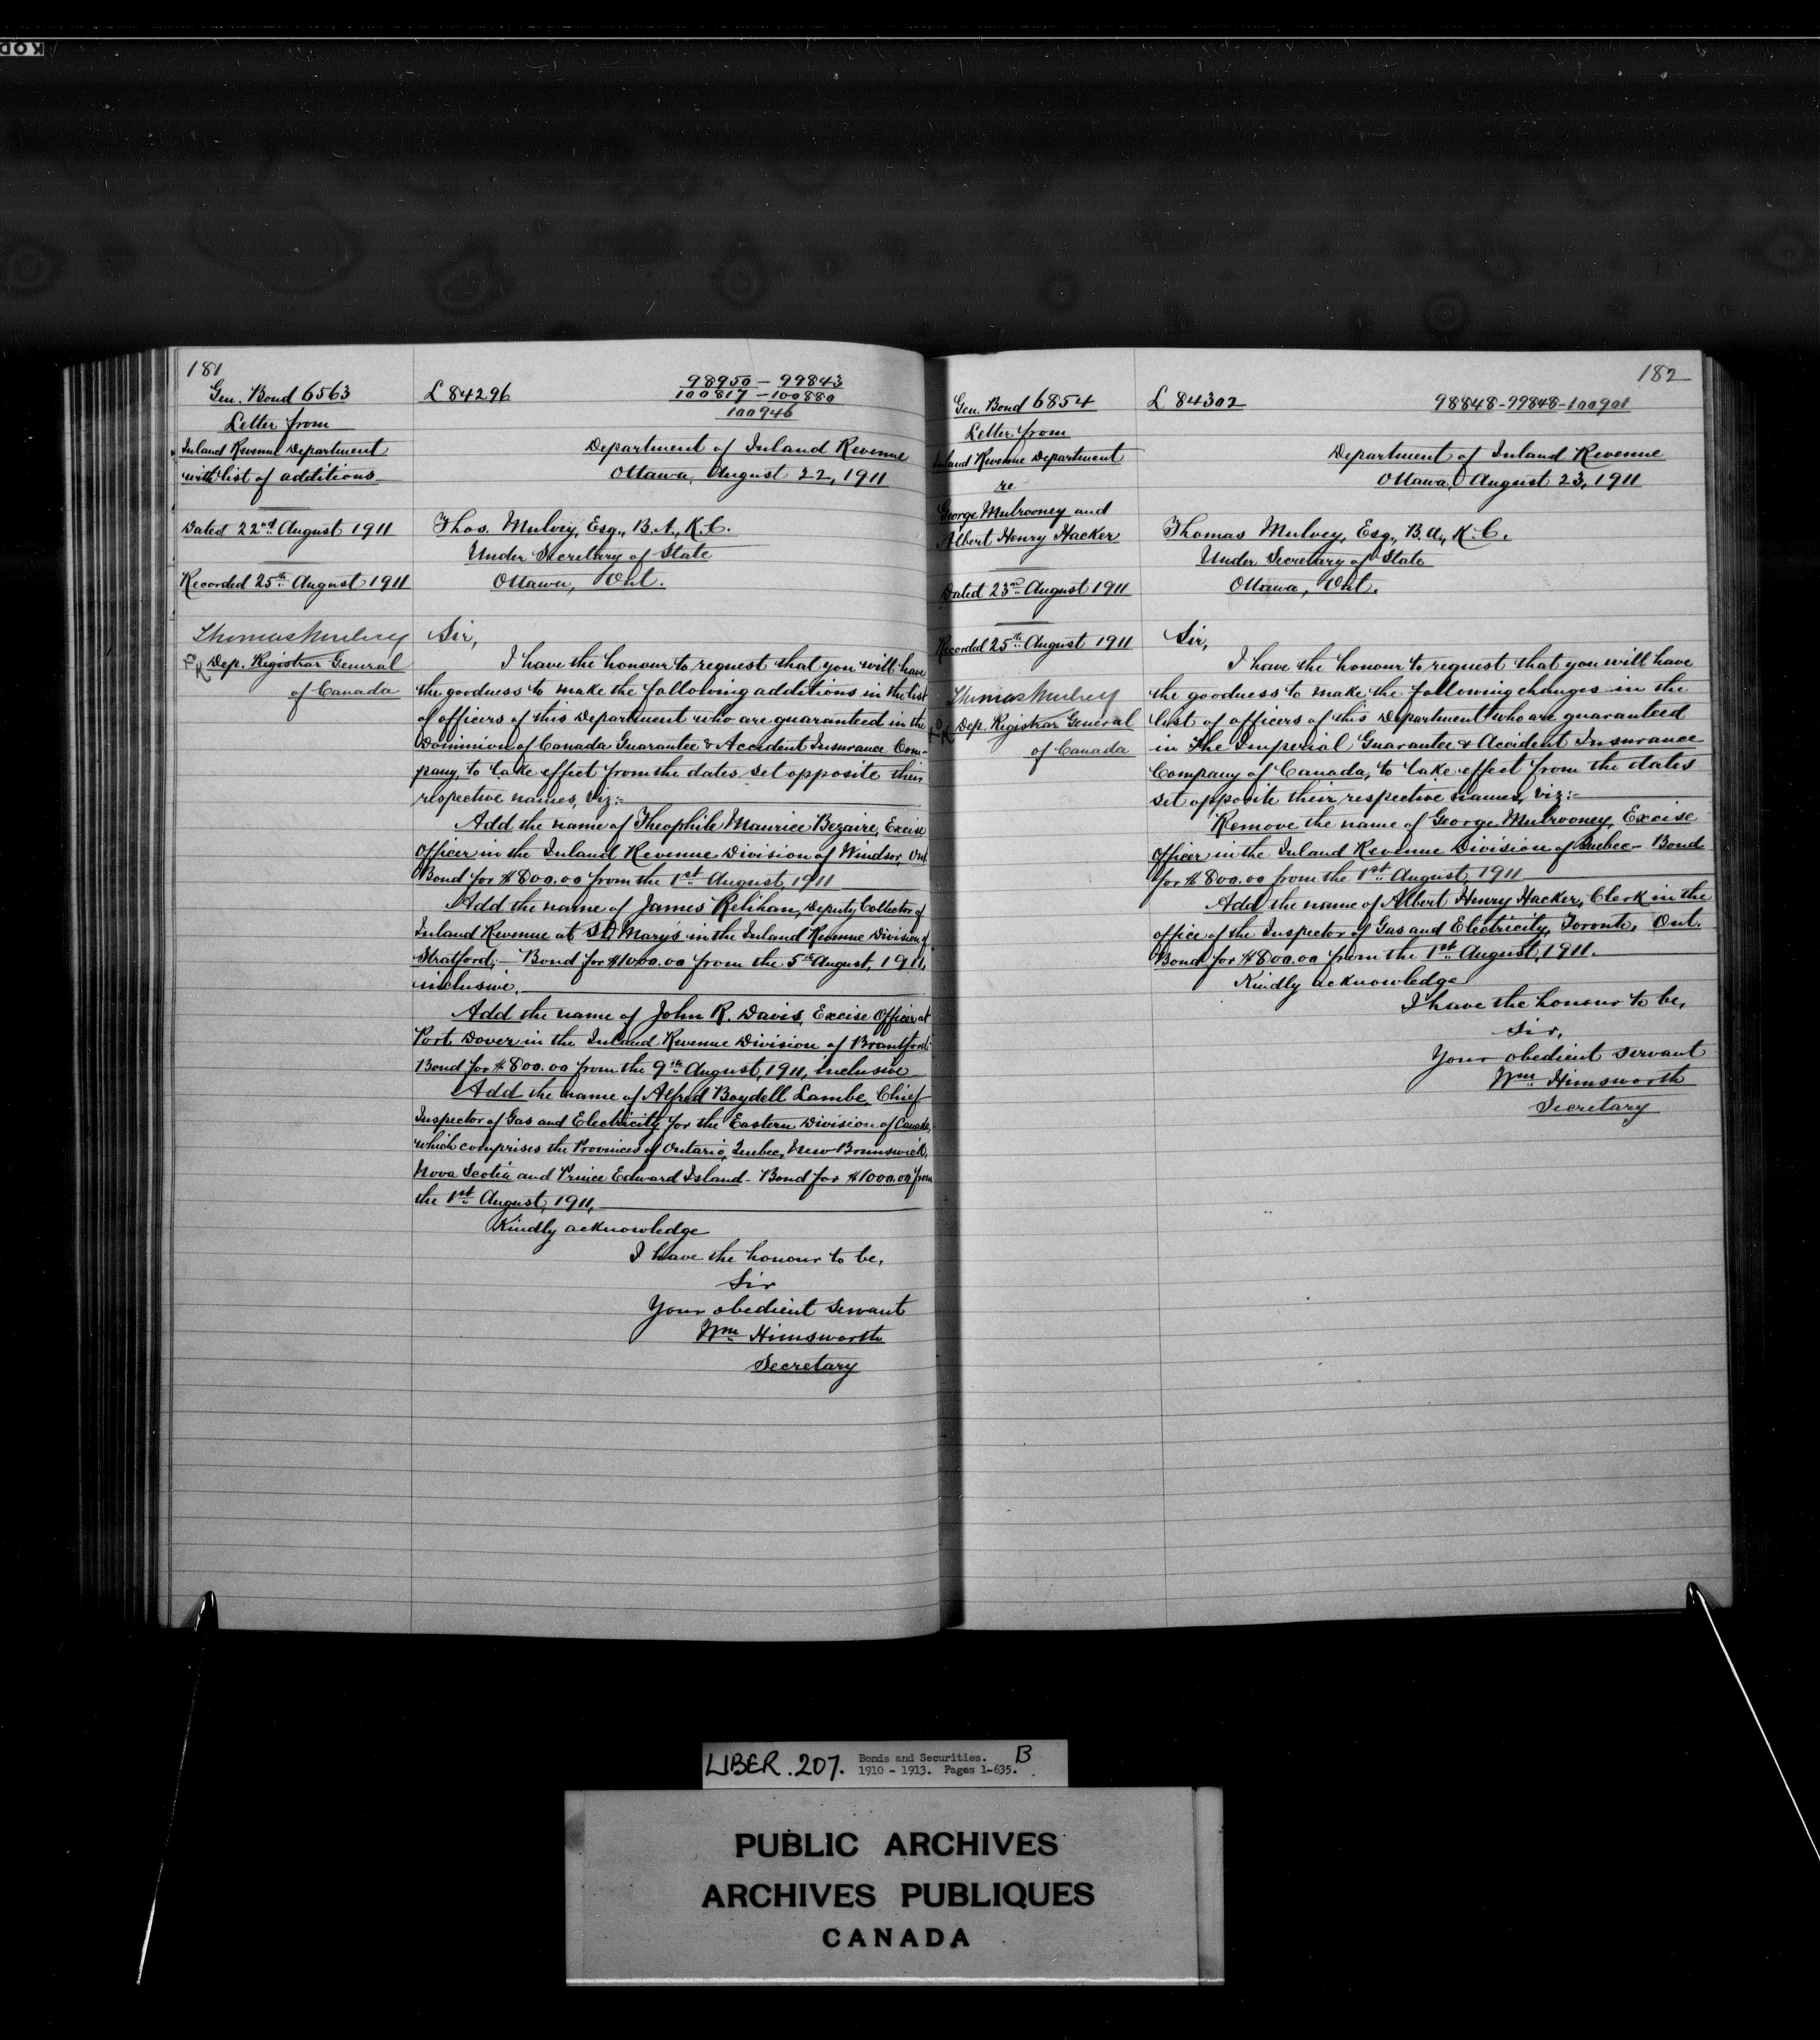 KOD
181
Gen. Bond 6563
Letter from
Inland Revenue Department
with list of additions
Dated 22nd August 1911
Recorded 25th August 1911
Thomas Mulvey
Dep. Registrar General
of Canada
L 84296
98950 - 99843
100817 - 100880
100946
Department of Inland Revenue
Ottawa, August 22, 1911
Thos. Mulvey, Esq., B.A., K.C.
Under Secretary of State
Ottawa, Ont.
Sir,
I have the honour to request that you will have
the goodness to make the following additions in the list
of officers of this Department who are guaranteed in the
Dominion of Canada Guarantee & Accident Insurance Com-
pany, to take effect from the dates set opposite their
respective names, viz:-
Add the name of Theophile Maurice Bezaire, Excise
Officer in the Inland Revenue Division of Windsor, Ont.
Bond for $800.00 from the 1st August, 1911
Add the name of James Relihan, Deputy Collector of
Inland Revenue at St Marys in the Inland Revenue Division of
Stratford;- Bond for $1000.00 from the 5th August, 1911,
inclusive.
Add the name of John R. Davis, Excise Officer at
Port Dover in the Inland Revenue Division of Brantford-
Bond for $800.00 from the 9th August, 1911, inclusive
Add the name of Alfred Boydell Lambe, Chief
Inspector of Gas and Electricity for the Eastern Division of Canada,
which comprises the Provinces of Ontario, Quebec, New Brunswick,
Nova Scotia and Prince Edward Island - Bond for $1000.00 from
the 1st August, 1911,
Kindly acknowledge
I have the honour to be,
Sir
Your obedient servant
Wm Himsworth
Secretary
182
Gen. Bond 6854
Letter from
Inland Revenue Department
re
George Mulrooney and
Albert Henry Hacker
Dated 23rd August 1911
Recorded 25th August 1911
Thomas Mulvey
Dep. Registrar General
of Canada
L 84302
98848-99848-100901
Department of Inland Revenue
Ottawa, August 23, 1911
Thomas Mulvey, Esq., B.A., K.C.
Under Secretary of State
Ottawa, Ont.
Sir,
I have the honour to request that you will have
the goodness to make the following changes in the
list of officers of this Department who are guaranteed
in The Imperial Guarantee & Accident Insurance
Company of Canada, to take effect from the dates
set opposite their respective names, viz:-
Remove the name of George Mulrooney, Excise
Officer in the Inland Revenue Division of Quebec - Bond
for $800.00 from the 1st August, 1911
Add the name of Albert Henry Hacker, Clerk in the
office of the Inspector of Gas and Electricity, Toronto, Ont.
Bond for $800.00 from the 1st August, 1911.
Kindly acknowledge
I have the honour to be,
Sir,
Your obedient servant
Wm Himsworth
Secretary
LIBER . 207. Bonds and Securities. B
1910 - 1913. Pages 1-635.
PUBLIC ARCHIVES
ARCHIVES PUBLIQUES
CANADA